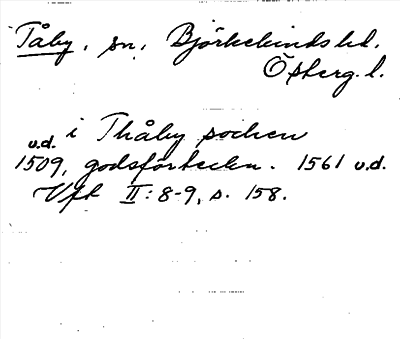 Tåby, sn, Björkekinds hd.
Östberg. l.
i Thåby sochen
u.d.
1509, godsförteckn. 1561 u.d.
Vfk II: 8-9, s. 158.